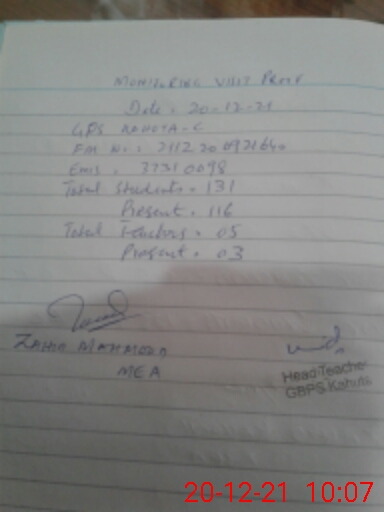 MONITORING VISIT PROOF
Date: 20-12-21
GPS KAHUTA-C
EMIS: 37310098
Total Students: 131
Present: 116
Total Teachers: 05
Present: 03
ZAHID MAHMOOD
MEA
Head Teacher
GBPS Kahuta
20-12-21 10:07